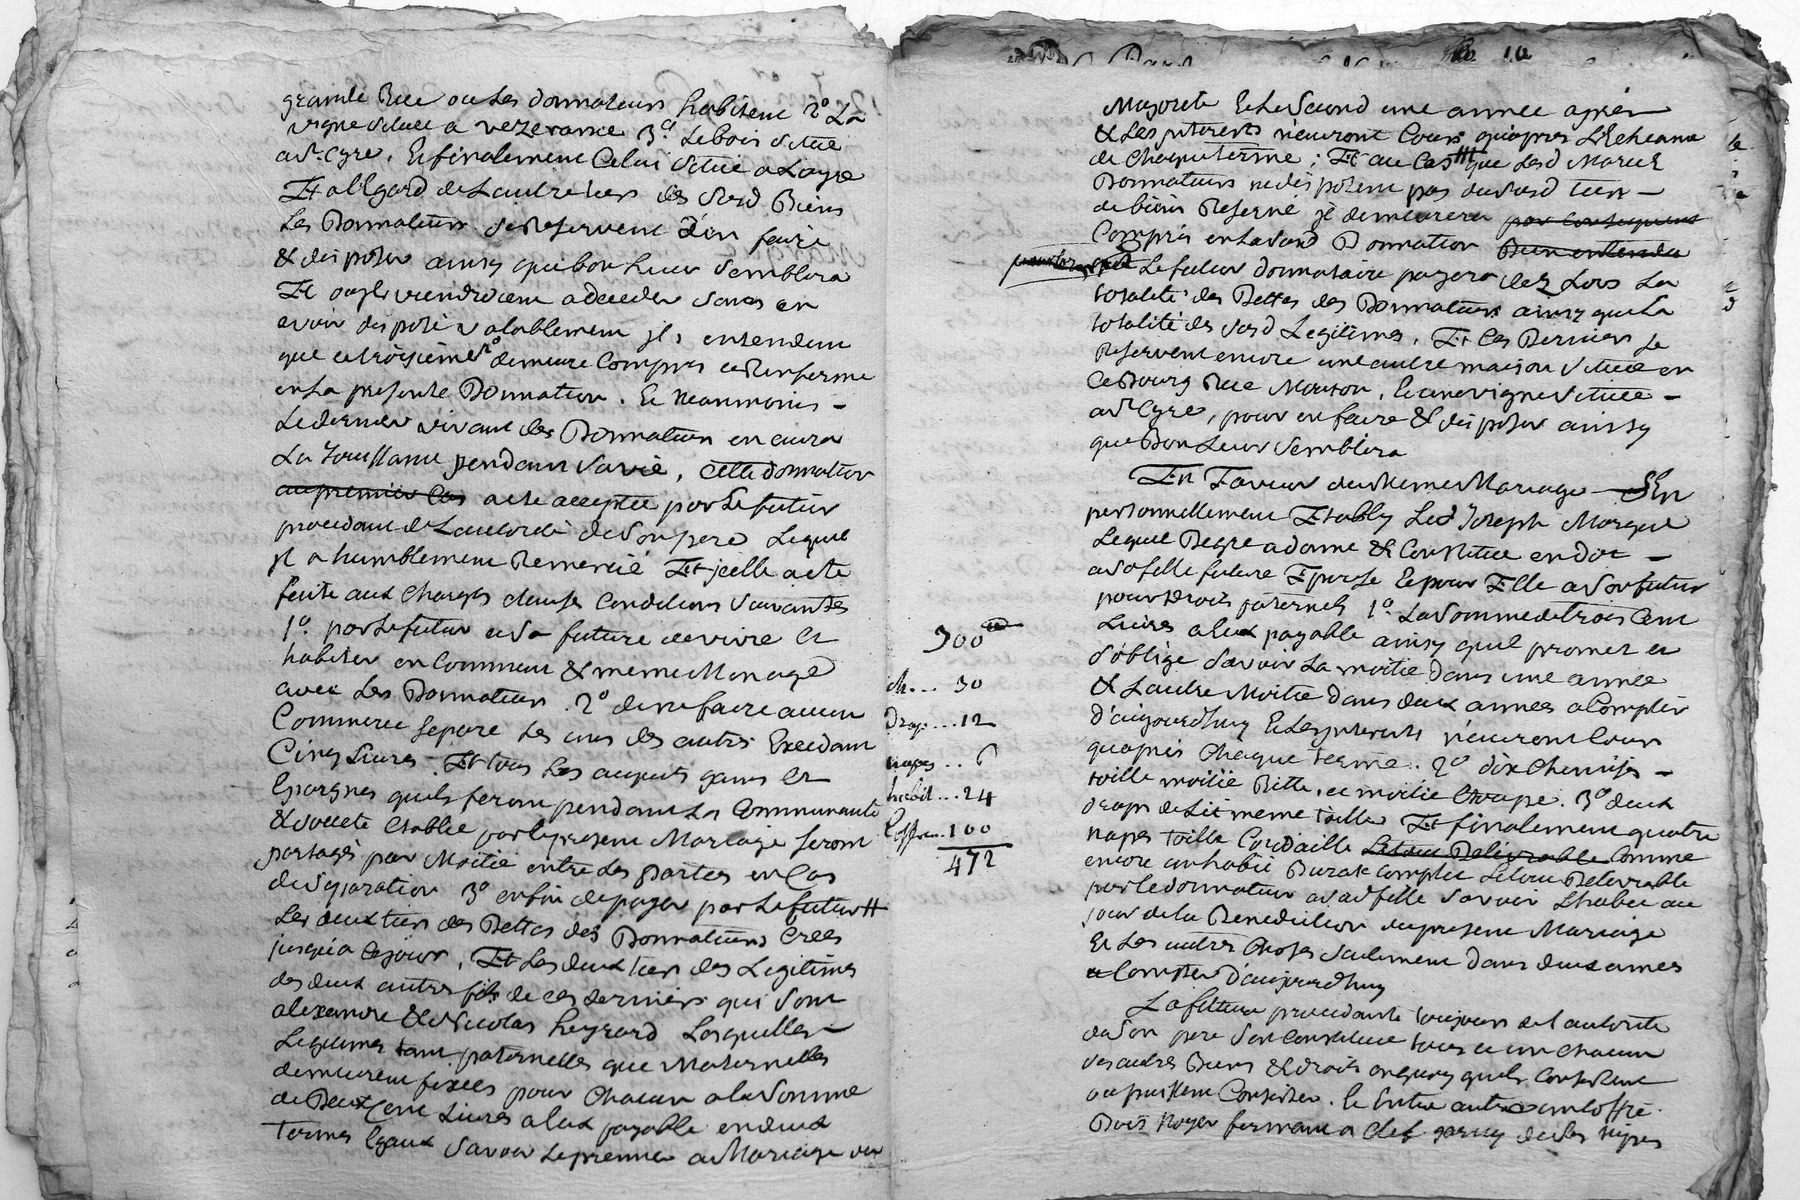 grande Rue ou les donnateurs habitent 2º La
vigne située a vezeronce 3º. Lebois situé
a St. Cyre. Et finalement Celui situé a Layre
Et a l'Egard de L'autre tiers des Susd Biens
Les Donnateurs se Reservent d'en faire
& disposer ainsy que bon leur Semblera
Et ou ils viendroient a deceder sans en
avoir disposé valablement ils entendent
que ce troisieme demeure Compris et Renfermé
en La presente Donnation. Et Neanmoins -
Le dernier vivant des Donnateurs en aura
La Jouissance pendant Sa vie, cette donnation
au premier Cas acte acceptée par Le futur
procedant de L'autorité de Son pere Lequel
il a humblement Remercié Et icelle acte
faite aux Charges clauses Conditions Suivantes
1º. par Le futur et Sa future de vivre et
habiter en Commun & meme Menage
avec Les Donnateurs. 2º de ne faire aucun
Commerce separé Les uns des autres Excedant
Cinq Livres. Et tous Les acquets gains et
Epargnes quils feront pendant La Communauté
& Societé Etablie par Le present Mariage seront
partagés par Moitié entre Les parties en Cas
de Separation 3º enfin de payer par Le futur
Les deux tiers des Dettes des Donnateurs Crées
jusqu'a Ce jour, Et Les deux tiers des Legitimes
des deux autres fils de ces derniers qui Sont
alexandre & Nicolas heyrard Lesquelles
Legitimes tant paternelles que Maternelles
demeurent fixées pour Chacun a la Somme
de Deux Cent Livres a Eux payable en deux
Termes Egaux Savoir Le premier au Mariage ou
10
Majorité Et Le Second une année après
& Les interets n'auront Cours qu'apres L'Echeance
de Chaque terme; Et au Cas que Lesd Mariés
Donnateurs ne disposent pas du Susd tiers -
de biens Reservé il demeurera par Consequent
Compris en La Susd Donnation Bien entendu
Le futur donnataire payera dez Lors La
totalité des Dettes des Donnateurs ainsy que La
totalité des Susd Legitimes. Et Ces Derniers Se
Reservent encore une autre maison Située en
Ce Bourg Rue Mouton, Et une vigne Située -
a St Cyre, pour en faire & disposer ainsy
que Bon Leur Semblera
En Faveur du meme Mariage - S'En
personnellement Etably Led Joseph Marque
Lequel Degré a donné & Constitué en dot -
a Sa fille future Epouse Et pour Elle a Son futur
pour Droits paternels 1º. La Somme de trois Cent
Livres a Eux payable ainsy quil promet et
S'oblige Savoir La moitié dans une année
& L'autre Moitié dans deux années a Compter
d'aujourd'huy Et Les interets n'auront Cours
qu'apres Chaque terme. 2º dix Chemises -
toille moitié Ritte, et moitié Etoupe. 3º deux
draps de Lit meme toille Et finalement quatre
napes toille Cordaille Le tout Delivrable Comme
encore un habit Durat Complet Le tout Delivrable
par Le donnateur a Sad fille Savoir L'habit au
jour de la Benediction du present Mariage
Et Les autres Choses Seulement dans deux années
a Compter d'aujourd'huy
La future procedante toujours de l'autorité
de Son pere S'en Constitue tous et un Chacun
Ses autres Biens & droits en quoy quils Consistent
ou puissent Consister. Et Entre autre un Coffre
Bois Noyer fermant a Clef garny de Ses nipes
300
ch... 30
Drap... 12
napes.. 6
habit... 24
Coffre.. 100
472